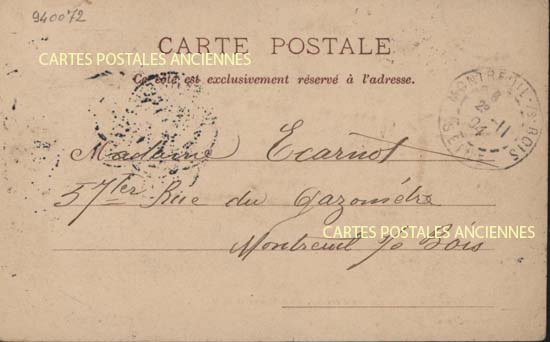 940072
CARTE POSTALE
CARTES POSTALES ANCIENNES
Ce côté est exclusivement réservé à l'adresse.
MONTREUIL-S-BOIS
11
04
Madame Ecarnot
57ter Rue du Gazomètre
CARTES POSTALES ANCIENNES
Montreuil s/s Bois